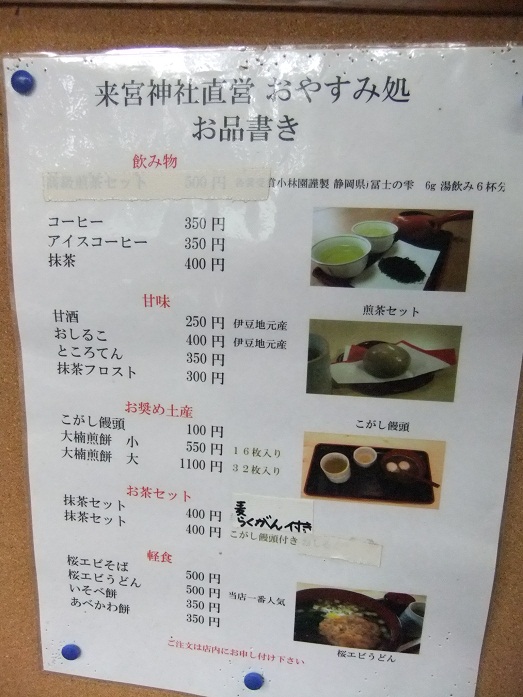 来宮神社直営 おやすみ処
お品書き
飲み物
煎茶セット 500円 小林園謹製 静岡県 富士の雫 6g 湯飲み6杯分
コーヒー 350円
アイスコーヒー 350円
抹茶 400円
煎茶セット
甘味
甘酒 250円 伊豆地元産
おしるこ 400円 伊豆地元産
ところてん 350円
抹茶フロスト 300円
こがし饅頭
お奨め土産
こがし饅頭 100円
大楠煎餅 小 550円 16枚入り
大楠煎餅 大 1100円 32枚入り
お茶セット
抹茶セット 400円 麦らくがん付き
抹茶セット 400円 こがし饅頭付き
軽食
桜エビそば 500円
桜エビうどん 500円 当店一番人気
いそべ餅 350円
あべかわ餅 350円
桜エビうどん
ご注文は店内にお申し付け下さい